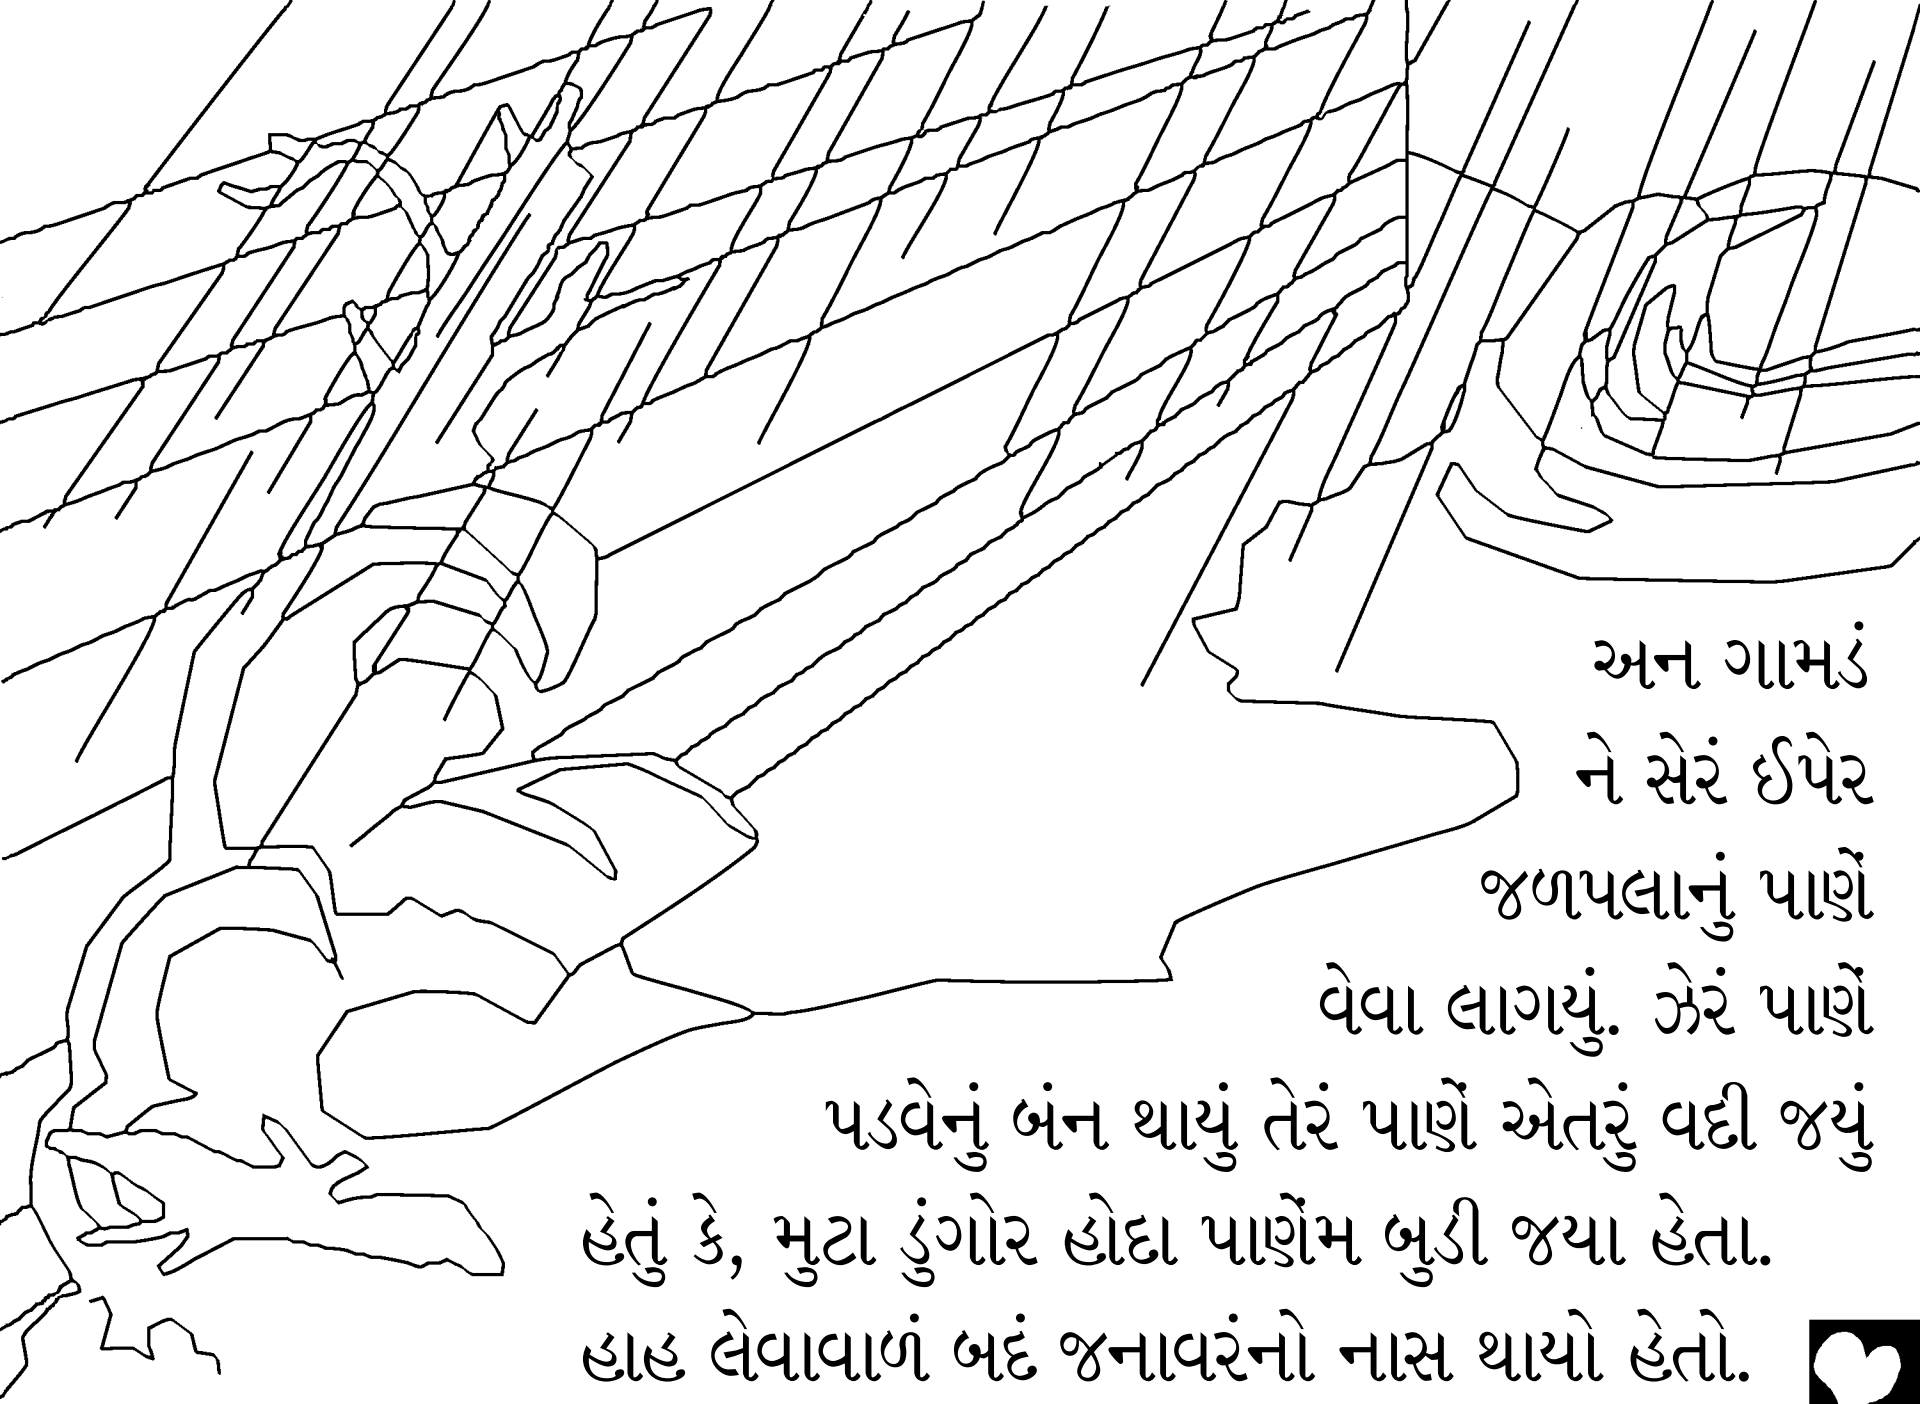 અન ગામડં
ને સેરં ઈપેર
જળપલાનું પાણેં
વેવા લાગયું. ઝેરં પાણેં
પડવેનું બંન થાયું તેરં પાણેં એતરું વદી જયું
હેતું કે, મુટા ડુંગોર હોદા પાણેંમ બુડી જયા હેતા.
હાહ લેવાવાળં બદં જનાવરંનો નાસ થાયો હેતો.